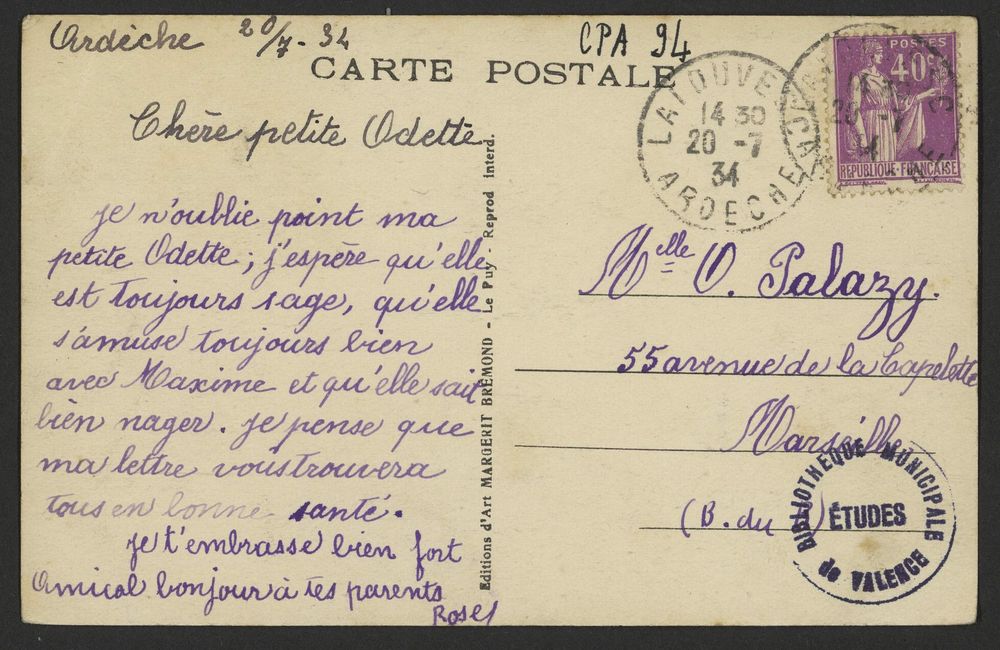 Ardèche 20/7-34
CPA 94
CARTE POSTALE
LALOUVE
14 30
20 -7
34
ARDECHE
POSTES
40c
REPUBLIQUE-FRANÇAISE
Chère petite Odette
je n'oublie point ma
petite Odette ; j'espère qu'elle
est toujours sage, qu'elle
s'amuse toujours bien
avec Maxime et qu'elle sait
bien nager. je pense que
ma lettre vous trouvera
tous en bonne santé.
je t'embrasse bien fort
Amical bonjour à tes parents
Rose
Editions d'Art MARGERIT BREMOND - Le Puy - Reprod interd.
Melle O. Palazy.
55 avenue de la Capelette
Marseille
(B. du )
BIBLIOTHEQUE MUNICIPALE
ÉTUDES
de VALENCE